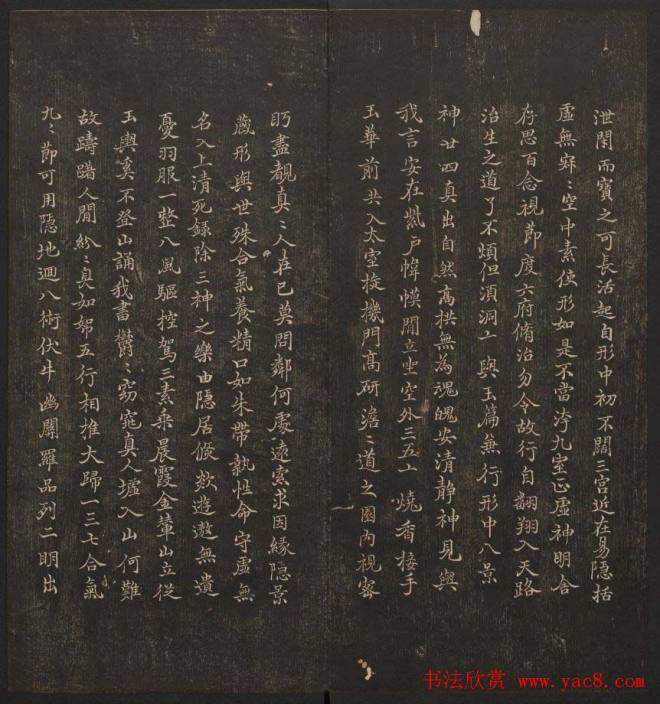 泄閇而寶之可長活起自形中初不闊三宮近在易隱括
虛無寂〻空中素使形如是不當汙九室正虛神明舍
存思百念視節度六府脩治勿令故行自翱翔入天路
治生之道了不煩但須洞玄與玉篇兼行形中八景
神廿四真出自然高拱無為魂魄安清静神見與
我言安在紫戶幃幙閒立坐空外三五玄燒香接手
玉華前共入太室璇機門高研澹〻道之園內視密
盻盡覩真〻人在已莫問鄰何處遠索求因緣隱景
藏形與世殊合氣養精口如朱帶執性命守虛無
名入上清死錄除三神之樂由隱居倏欻遊遨無遺
憂羽服一整八風驅控駕三素乘晨霞金輦山立從
玉輿奚不登山誦我書欝〻窈窕真人墟入山何難
故躊躇人閒紛〻臭如帤五行相推大歸一三七合氣
九〻節可用隱地迴八術伏牛幽闕羅品列二明出
书法欣赏 www.yac8.com